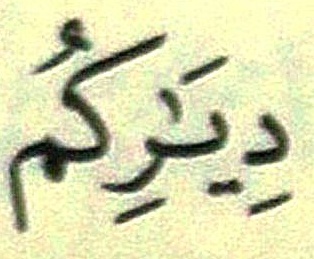 دِيَٰرِكُم